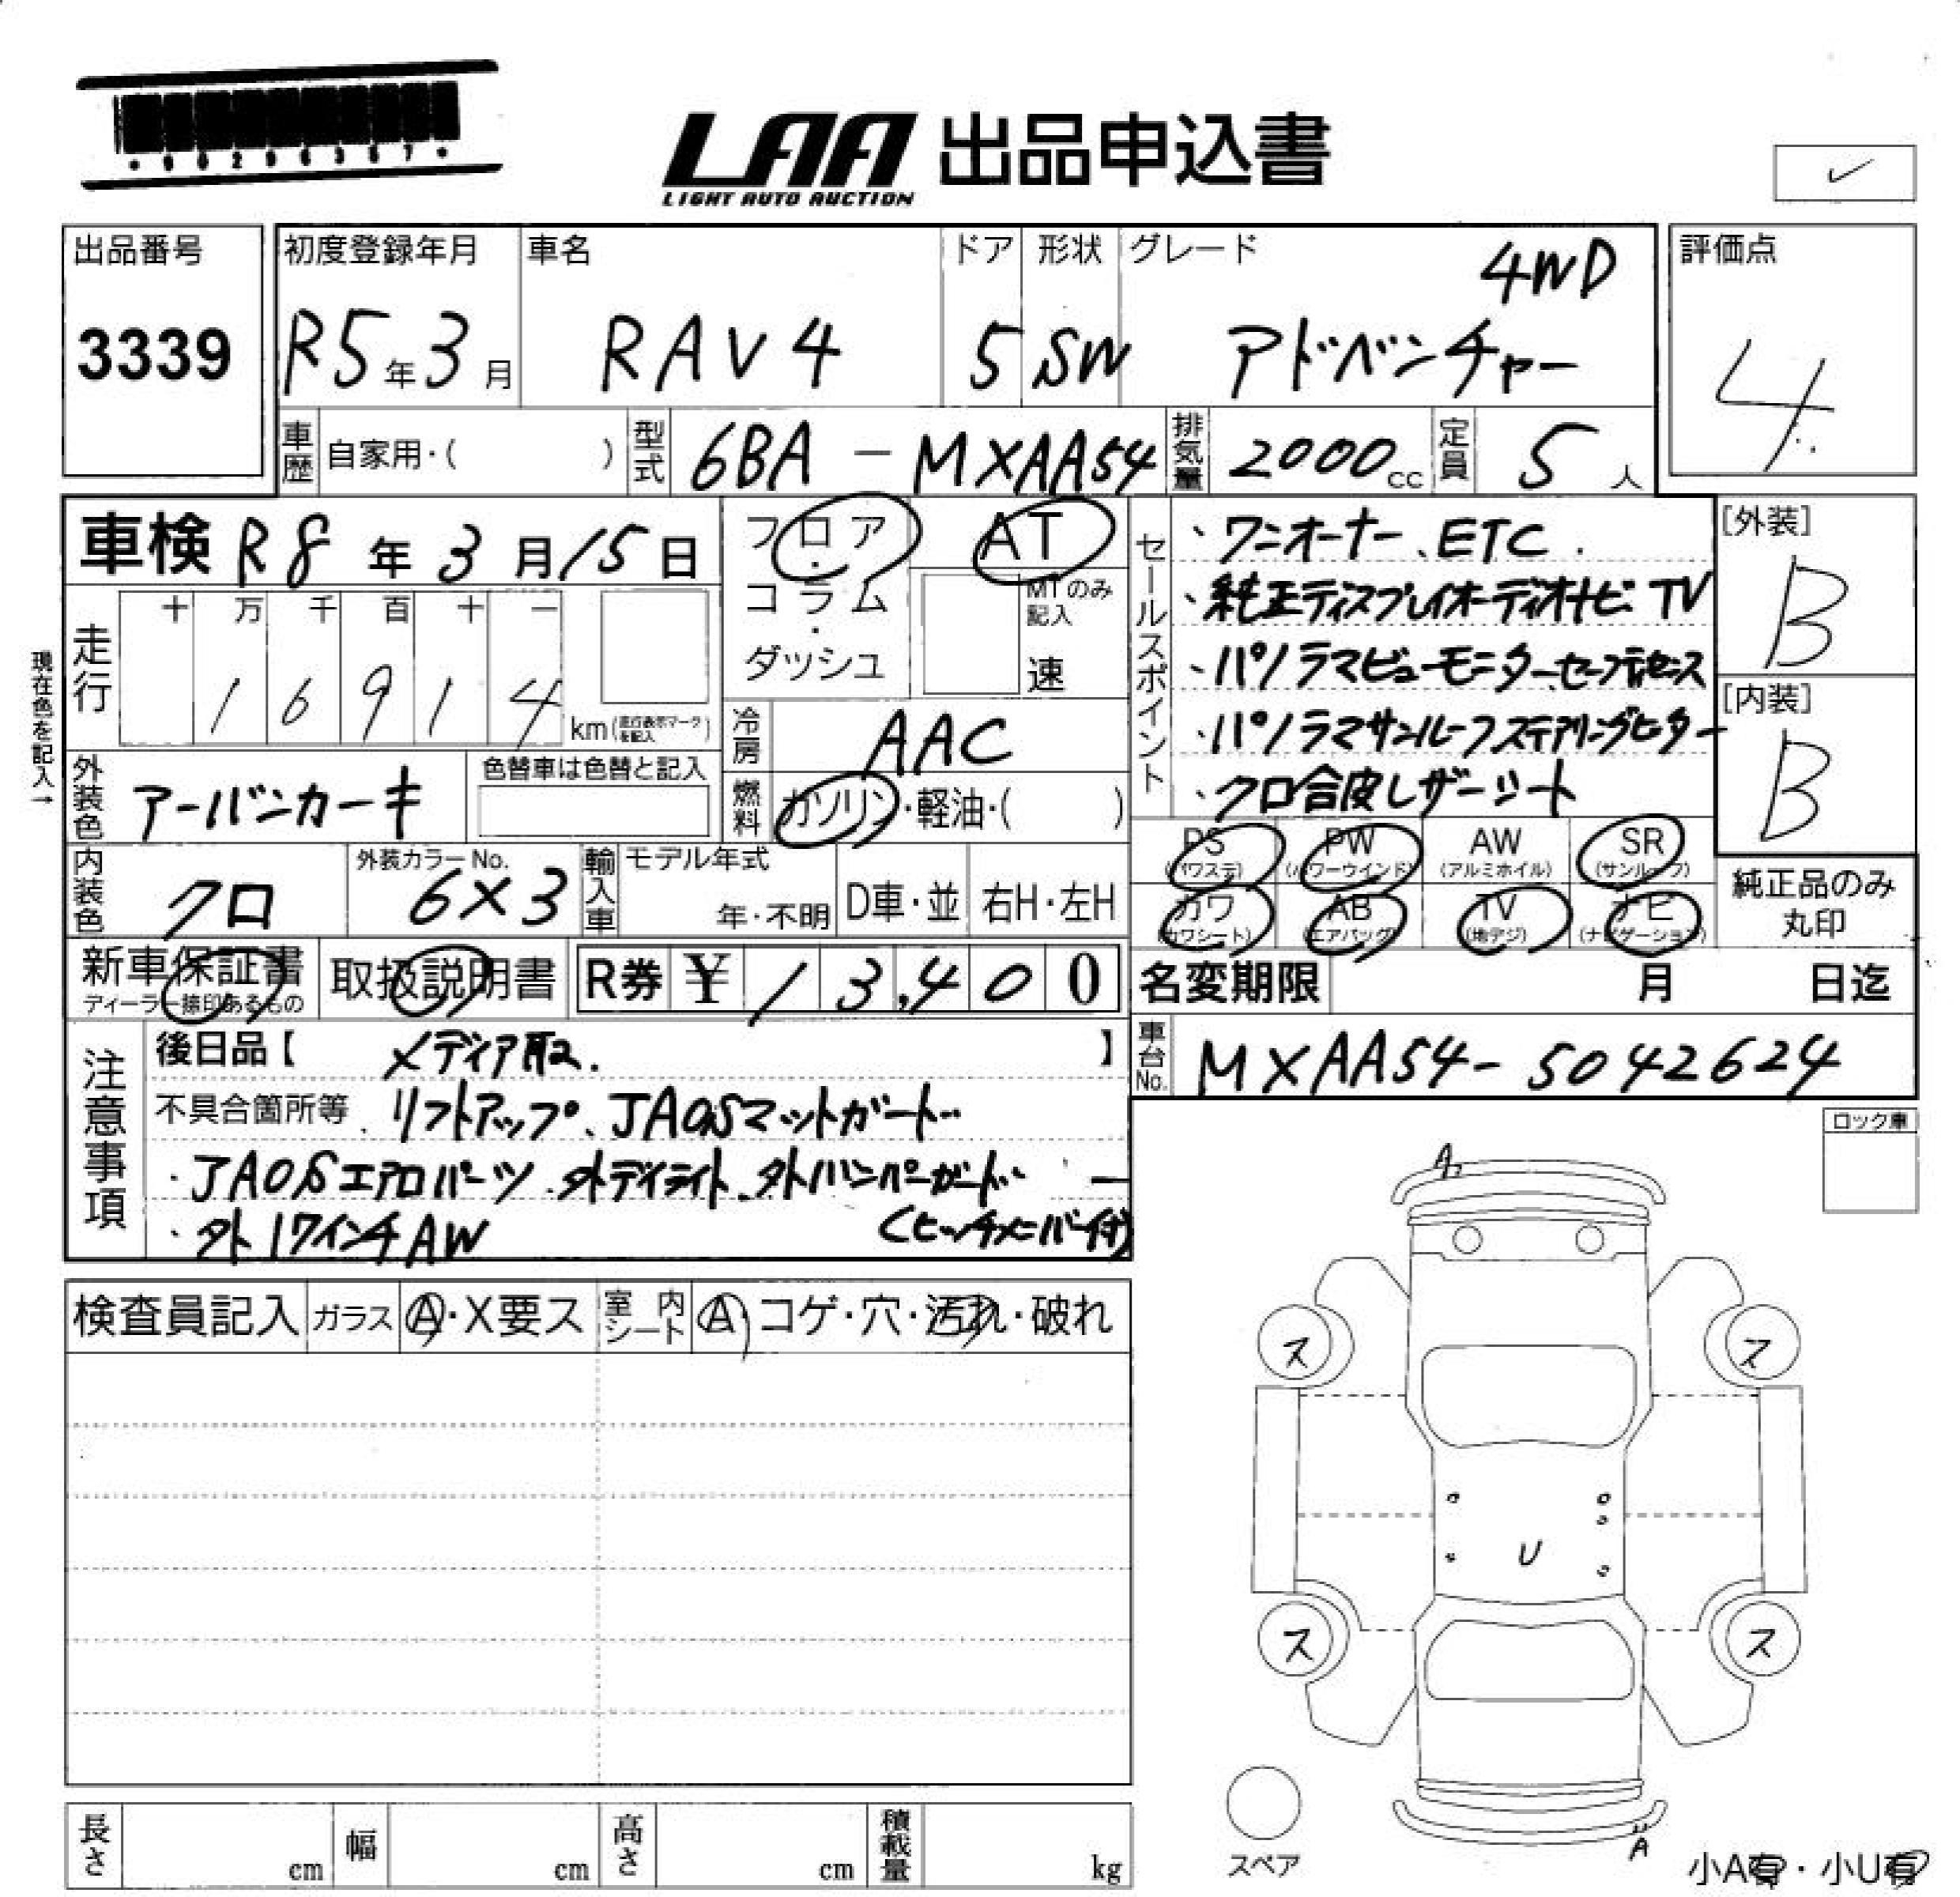 LAA 出品申込書
LIGHT AUTO AUCTION
出品番号
3339
初度登録年月
R5年3月
車名
RAV4
ドア
5
形状
SW
グレード
4WD
アドベンチャー
評価点
4
車歴 自家用・( )
型式 6BA-MXAA54
排気量 2000cc
定員 5人
車検 R8年3月15日
フロア・コラム・ダッシュ
AT
MTのみ記入
速
現在色を記入→
走行
十 万 千 百 十 一
1 6 9 1 4 km (走行表示マークを記入)
冷房 AAC
燃料 ガソリン・軽油・( )
外装色 アーバンカーキ
色替車は色替と記入
内装色 クロ
外装カラーNo.
6X3
輸入車
モデル年式
年・不明
D車・並
右H・左H
セールスポイント
、ワンオーナー、ETC.
・純正ディスプレイオーディオナビ TV
・パノラマビューモニター、セーフティセンス
・パノラマサンルーフ ステアリングヒーター
・クロ合皮レザーシート
[外装]
B
[内装]
B
PS (パワステ)
PW (パワーウインド)
AW (アルミホイル)
SR (サンルーフ)
カワ (カワシート)
AB (エアバッグ)
TV (地デジ)
ナビ (ナビゲーション)
純正品のみ
丸印
新車保証書
ディーラー捺印あるもの
取扱説明書
R券 ¥13,400
名変期限 月 日迄
車台No. MXAA54-5042624
注意事項
後日品【 メディア取. 】
不具合箇所等 . リフトアップ、JAOSマットガード
・JAOSエアロパーツ、外デイライト、外バンパーガード
・外17インチAW (ヒッチメンバー付)
ロック車
検査員記入
ガラス A・X要ス
室内シート A コゲ・穴・汚れ・破れ
A
ス ス
U
ス ス
A
スペア
小A有・小U有
長さ cm
幅 cm
高さ cm
積載量 kg